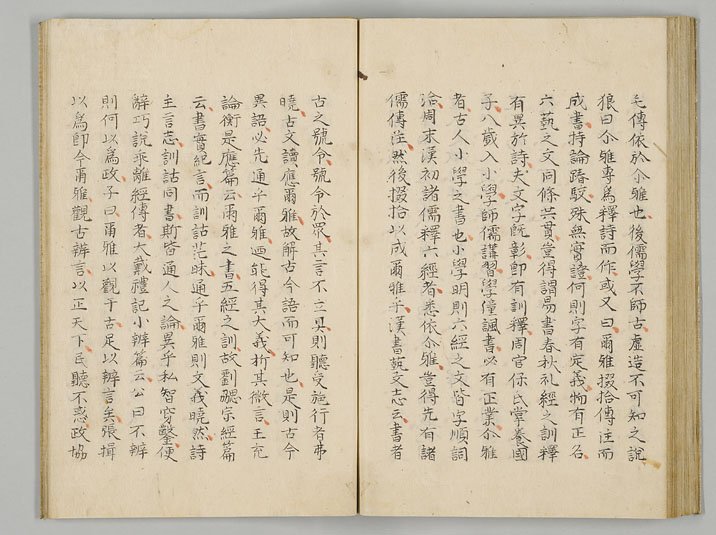 毛傳依於尒雅也後儒學不師古虚造不可知之說
狼曰尒雅專爲釋詩而作或又曰爾雅掇拾傳注而
成書持論踳駮殊無實證何則字有定義物有正名
六藝之文同條共貫豈得謂易書春秋礼經之訓釋
有異於詩夫文字既彰卽有訓釋周官保氏掌養國
子八歲入小學師儒講習學僮諷書必有正業尒雅
者古人小學之書也小學明則六經之文皆字順詞
洽周末漢初諸儒釋六經者悉依尒雅豈得先有諸
儒傳注然後掇拾以成爾雅乎漢書藝文志云書者
古之號令號令於眾其言不立具則聽受施行者弗
曉古文讀應爾雅故解古今語而可知也是則古今
異語必先通乎爾雅廼能得其大義析其微言王充
論衡是應篇云爾雅之書五經之訓故劉勰宗經篇
云書實紀言而訓詁茫昧通乎爾雅則文義曉然詩
主言志訓詁同書斯皆通人之論異乎私智穿鑿便
辭巧說乖離經傳者大戴禮記小辨篇云公曰不辨
則何以爲政子曰爾雅以觀于古足以辨言矣張揖
以爲卽今爾雅觀古辨言以正天下民聽不惑政協